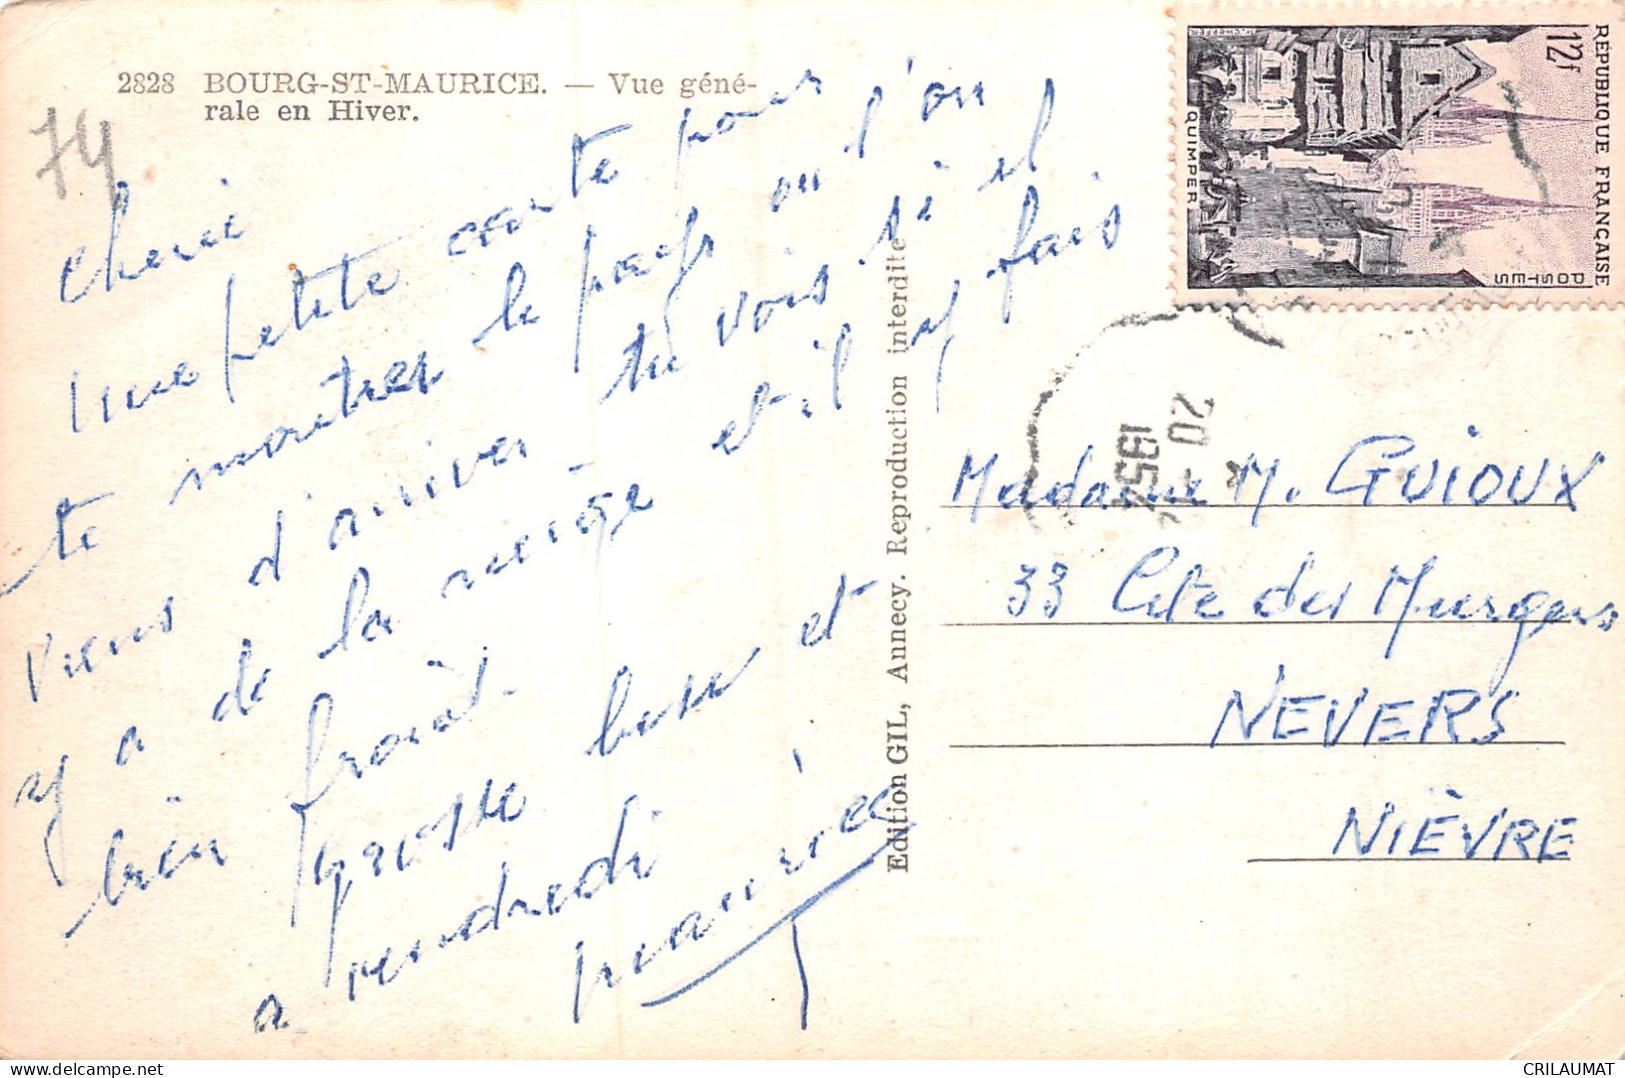 2828 BOURG-ST-MAURICE. — Vue géné-
rale en Hiver.
74
cherie
une petite carte pour
te montrer le pays ou l'on
viens d'arriver tu vois si il
y a de la neige et il y fais
bien froid.
grosse bise et
a vendredi
maurice
Edition GIL, Annecy. Reproduction interdite
RÉPUBLIQUE FRANÇAISE
12f
POSTES
QUIMPER
20 - 1
1954
Madame M. GUIOUX
33 Cite des Murgers
NEVERS
NIÈVRE
CRILAUMAT